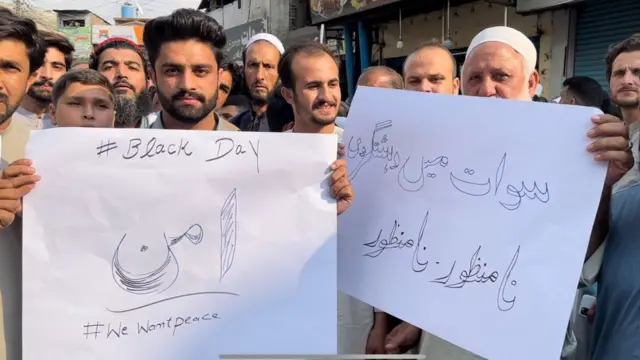 #Black Day
امن
#We Want peace
سوات میں دہشتگردی
نامنظور. نامنظور